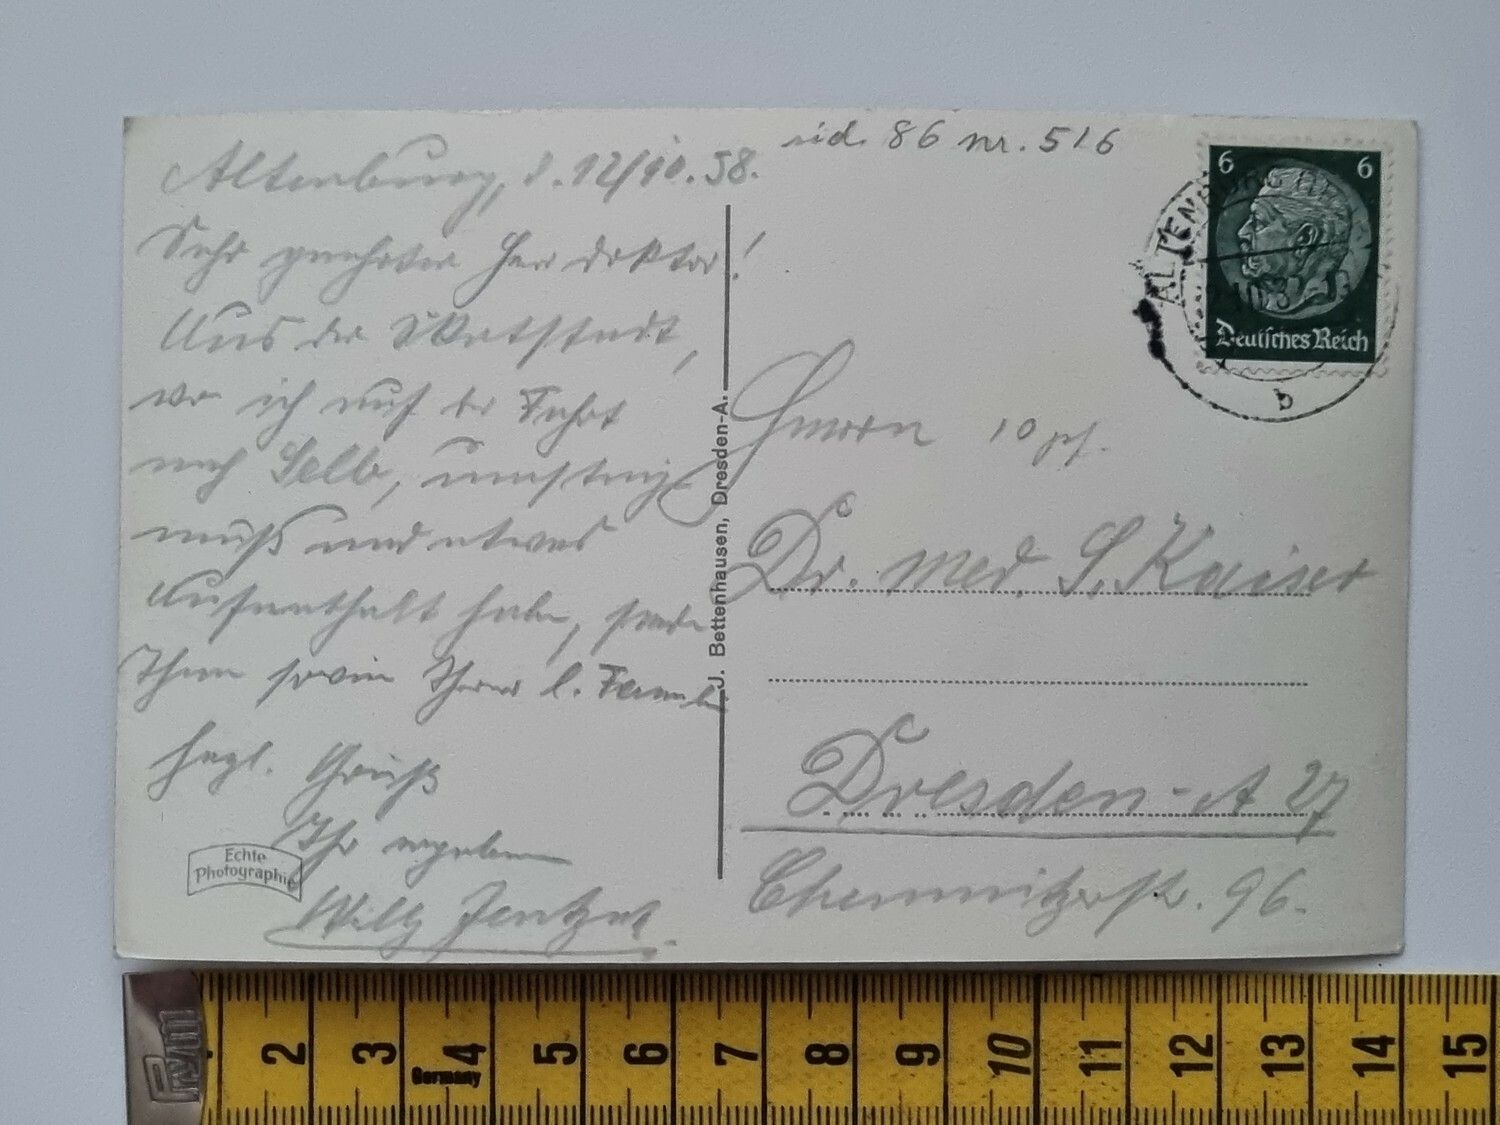 Altenburg, d. 12/10.38.
Sehr geehrter Herr Doktor!
Aus der Skatstadt,
wo ich auf der Fahrt
nach Selb, umsteigen
muß und etwas
Aufenthalt habe, sende
Ihnen sowie Ihrer l. Familie
herzl. Grüße
Ihr ergebener
Willy
Echte
Photographie
J. Bettenhausen, Dresden-A.
86 nr. 516
6 6
Deutsches Reich
ALTENBURG
b
Herrn 10 pf.
Dr. med. S. Kaiser
Dresden-A 27
Chemnitzerstr. 96.
Prym
2 3 4 5 6 7 8 9 10 11 12 13 14 15
Germany